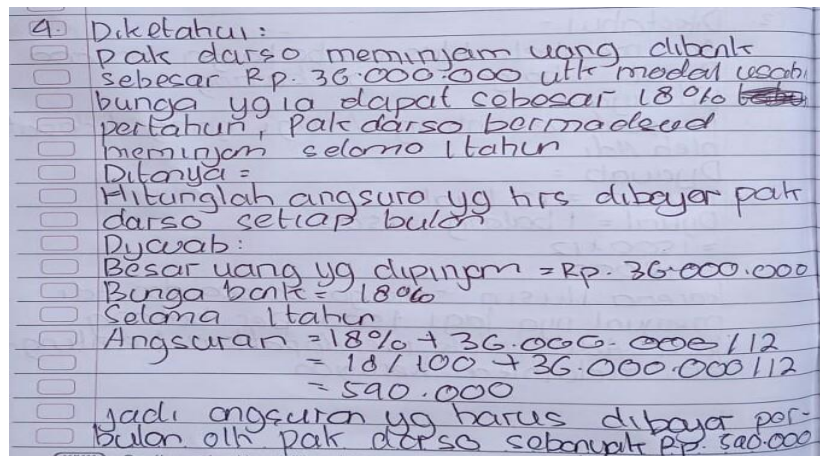 4. Diketahui :
Pak darso meminjam uang dibank
sebesar Rp. 36.000.000 utk modal usaha
bunga yg ia dapat sebesar 18%
pertahun, Pak darso bermaksud
meminjam selama 1 tahun
Ditanya =
Hitunglah angsura yg hrs dibayar pak
darso setiap bulan
Dijwab :
Besar uang yg dipinjam = Rp. 36.000.000
Bunga bank = 18%
Selama 1 tahun
Angsuran = 18% + 36.000.000 / 12
= 18 / 100 + 36.000.000 / 12
= 590.000
Jadi angsuran yg harus dibayar per-
bulan olh pak darso sebanyak Rp. 590.000